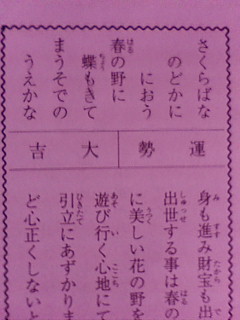 さくらばな
のどかに
におう
春の野に
蝶もきて
まうそでの
うえかな
運勢
大吉
身も進み財宝も出
出世する事は春の
に美しい花の野を
遊び行く心地にて
引立にあずかりま
ど心正くしないと